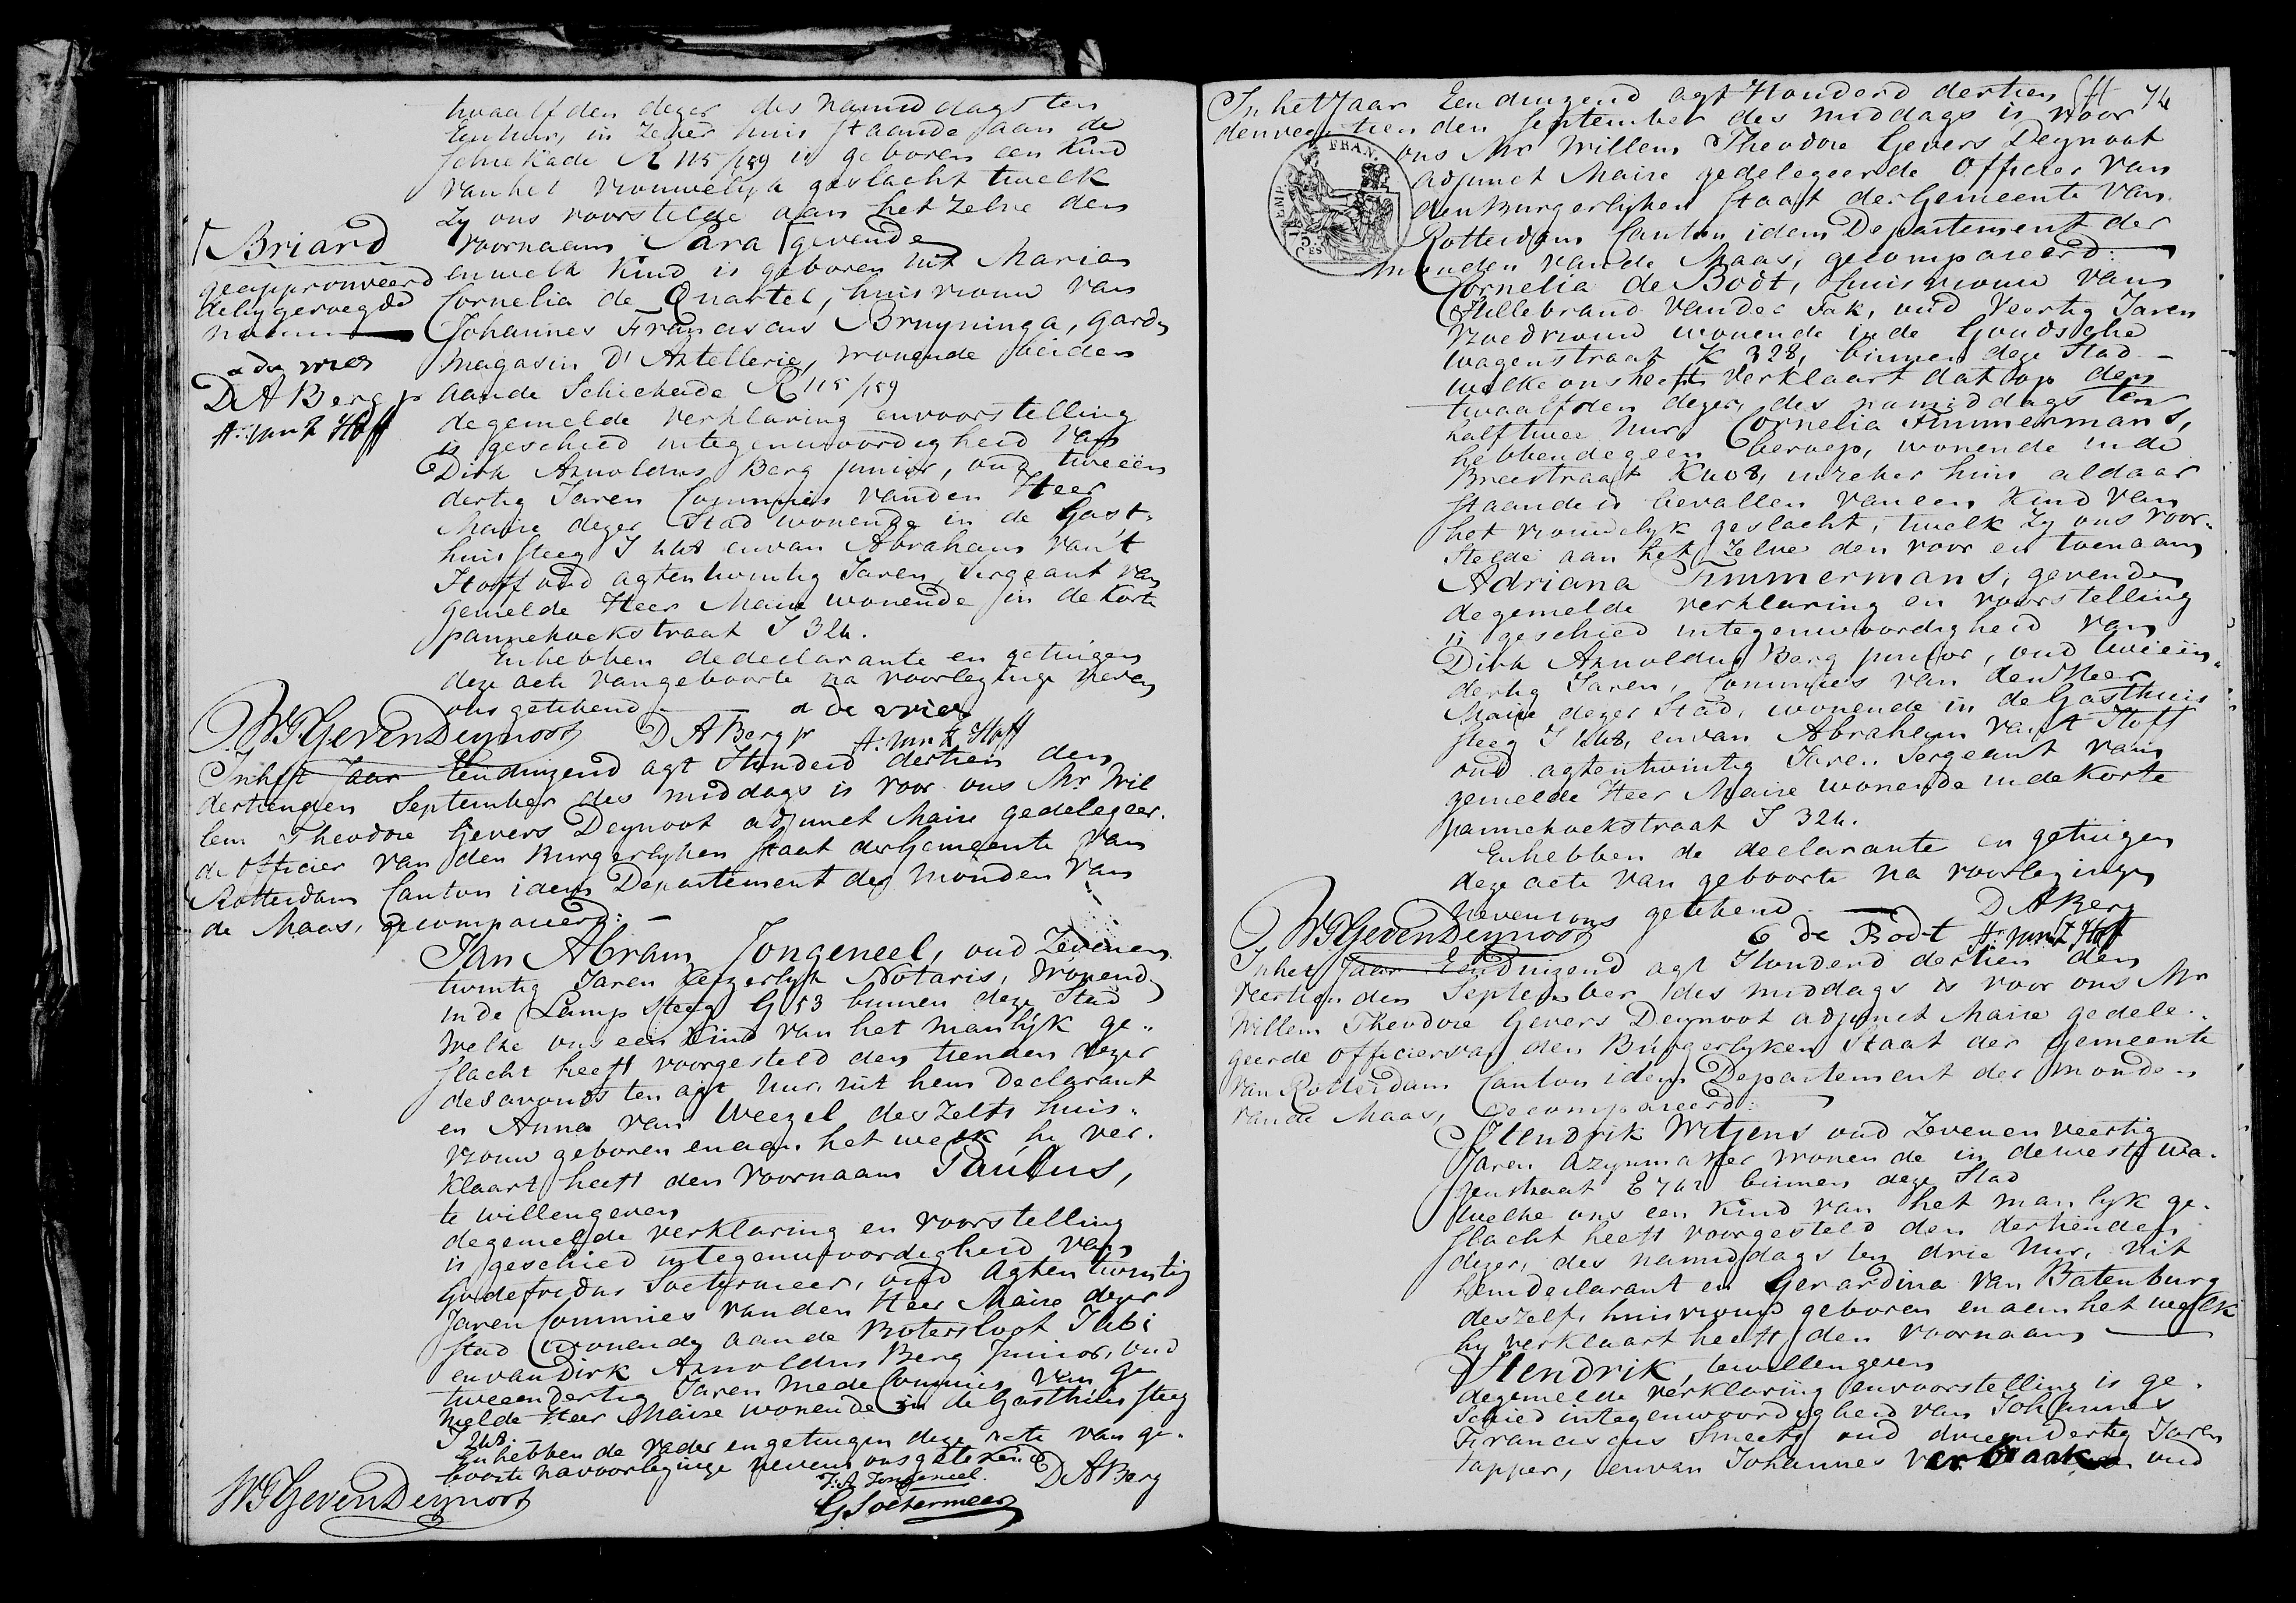 twaalfden dezer des namiddags ten
Een uur, in zeker huis staande aan de
Schiekade R 115/159 is geboren een Kind
van het vrouwelijk geslacht twelk
Zy ons voorstelde aan het zelve den
voornaam Sara ⌈ gevende
en welk Kind is geboren uit Maria
Cornelia de Quartel, huisvrouw van
Johannes Franciscus Bruyninga, garde
magasin D'Artellerie, wonende beiden
aande Schiekade R 115/159
de gemelde verklaring en voorstelling
is geschied in tegenwoordigheid van
Dirk Arnoldus Berg junior, oud tweeën
dertig Jaren Commies vanden Heer
Maire dezer Stad wonende in de Gast-
huissteeg I 448 en van Abraham van't
Hoff oud agtentwintig Jaren, Sergeant van
gemelde Heer Maire wonende in de Korte
pannekoekstraat I 324.
En hebben de declarante en getuigen
deze acte van geboorte na voorlezinge neven
ons getekend
⌈ Briard
geapprouveerd
de bygevoegde
naam
a de vries
D A Berg jr
A: van t Hoff
a de vries
WTGeversDeynoot D A Berg jr A: van t Hoff
In het Jaar Eenduizend agt Honderd dertien den
dertienden September des middags is voor ons Mr Wil
lem Theodore Gevers Deynoot adjunct Maire gedelegeer-
de officier van den Burgerlyken staat der Gemeente van
Rotterdam Canton idem Departement der Monden van
de Maas, gecompareerd: -
Jan Abram Jongeneel, oud Zevenen
twintig Jaren Keizerlyk Notaris, wonende
in de Lamp steeg G 53 binnen deze Stad
Welke ons een Kind van het manlijk ge-
slacht heeft voorgesteld den tienden dezer
des avonds ten agt uur, uit hem Declarant
en Anna van Weezel deszelfs huis-
vrouw geboren en aan het welk hy ver-
klaart heeft den voornaam Paulus,
te willen geven
de gemelde verklaring en voorstelling
is geschied in tegenwoordigheid van
Godefridus Soetermeer, oud Agtentwintig
Jaren Commies vanden Heer Maire dezer
stad wonende aande Botersloot
en van Dirk Arnoldus Berg Junior, oud
tweeendertig Jaren mede Commies van ge
melde Heer Maire wonende in de Gasthuis steeg
I 448.
En hebben de vader en getuigen deze acte van ge-
boorte na voorlezinge nevens ons getekend
J: A Jongeneel. D A Berg
WTGeversDeynoot GSoetermeer
74
In het Jaar Eenduizend agt Honderd dertien
den veertienden September des middags is voor
ons Mr Willem Theodore Gevers Deynoot
adjunct Maire gedelegeerde Officier van
den Burgerlyken staat der Gemeente van
Rotterdam Canton idem Departement der
Monden vande Maas, gecompareerd:
EMP. FRAN.
75
CES
Cornelia de Bodt, huisvrouw van
Hillebrand vander Fak, oud Veertig Jaren
vroedvrouw wonende in de Goudsche
wagenstraat K 328, binnen deze Stad -
welke ons heeft Verklaart dat op den
twaalfden dezer, des namiddags ten
half twee uur, Cornelia Timmermans,
hebbende geen beroep, wonende in de
Breestraat K 408, in zeker huis aldaar
staande is bevallen van een Kind van
het vrouwelyk geslacht, twelk Zy ons voor-
stelde aan het Zelve den voor en toenaam
Adriana Timmermans, gevende
de gemelde verklaring en voorstelling
is geschied in tegenwoordigheid van
Dirk Arnoldus Berg junior, oud tweeën-
dertig Jaren, Commies van den Heer
Maire dezer Stad, wonende in de Gasthuis
steeg I 448, en van Abraham van't Hoff
oud agtentwintig Jaren Sergeant van
gemelde Heer Maire wonende in de Korte
pannekoekstraat I 324.
En hebben de declarante en getuigen
deze acte van geboorte na voorlezinge
nevens ons getekend D A Berg
WTGeversDeynoot C de Bodt A: van t Hoff
In het Jaar Eenduizend agt Honderd dertien den
veertienden September des middags is voor ons Mr
Willem Theodore Gevers Deynoot adjunct Maire gedele-
geerde officier van den Burgerlyken Staat der Gemeente
van Rotterdam Canton idem Departement der Monden
vande Maas, Gecompareerd:
Hendrik Witjens oud Zevenenveertig
Jaren azynmaker wonende in de weste wa-
genstraat E 742 binnen deze Stad
welke ons een Kind van het manlyk ge-
slacht heeft voorgesteld den dertienden
dezer, des namiddags ten drie uur, uit
hem declarant en Gerardina van Batenburg
deszelfs huisvrouw geboren en aan het welk
hy verklaart heeft den voornaam
Hendrik, te willen geven
de gemelde verklaring en voorstelling is ge-
schied in tegenwoordigheid van Johannes
Franciscus Smeets oud drieendertig Jaren
Tapper, en van Johannes verbraak oud